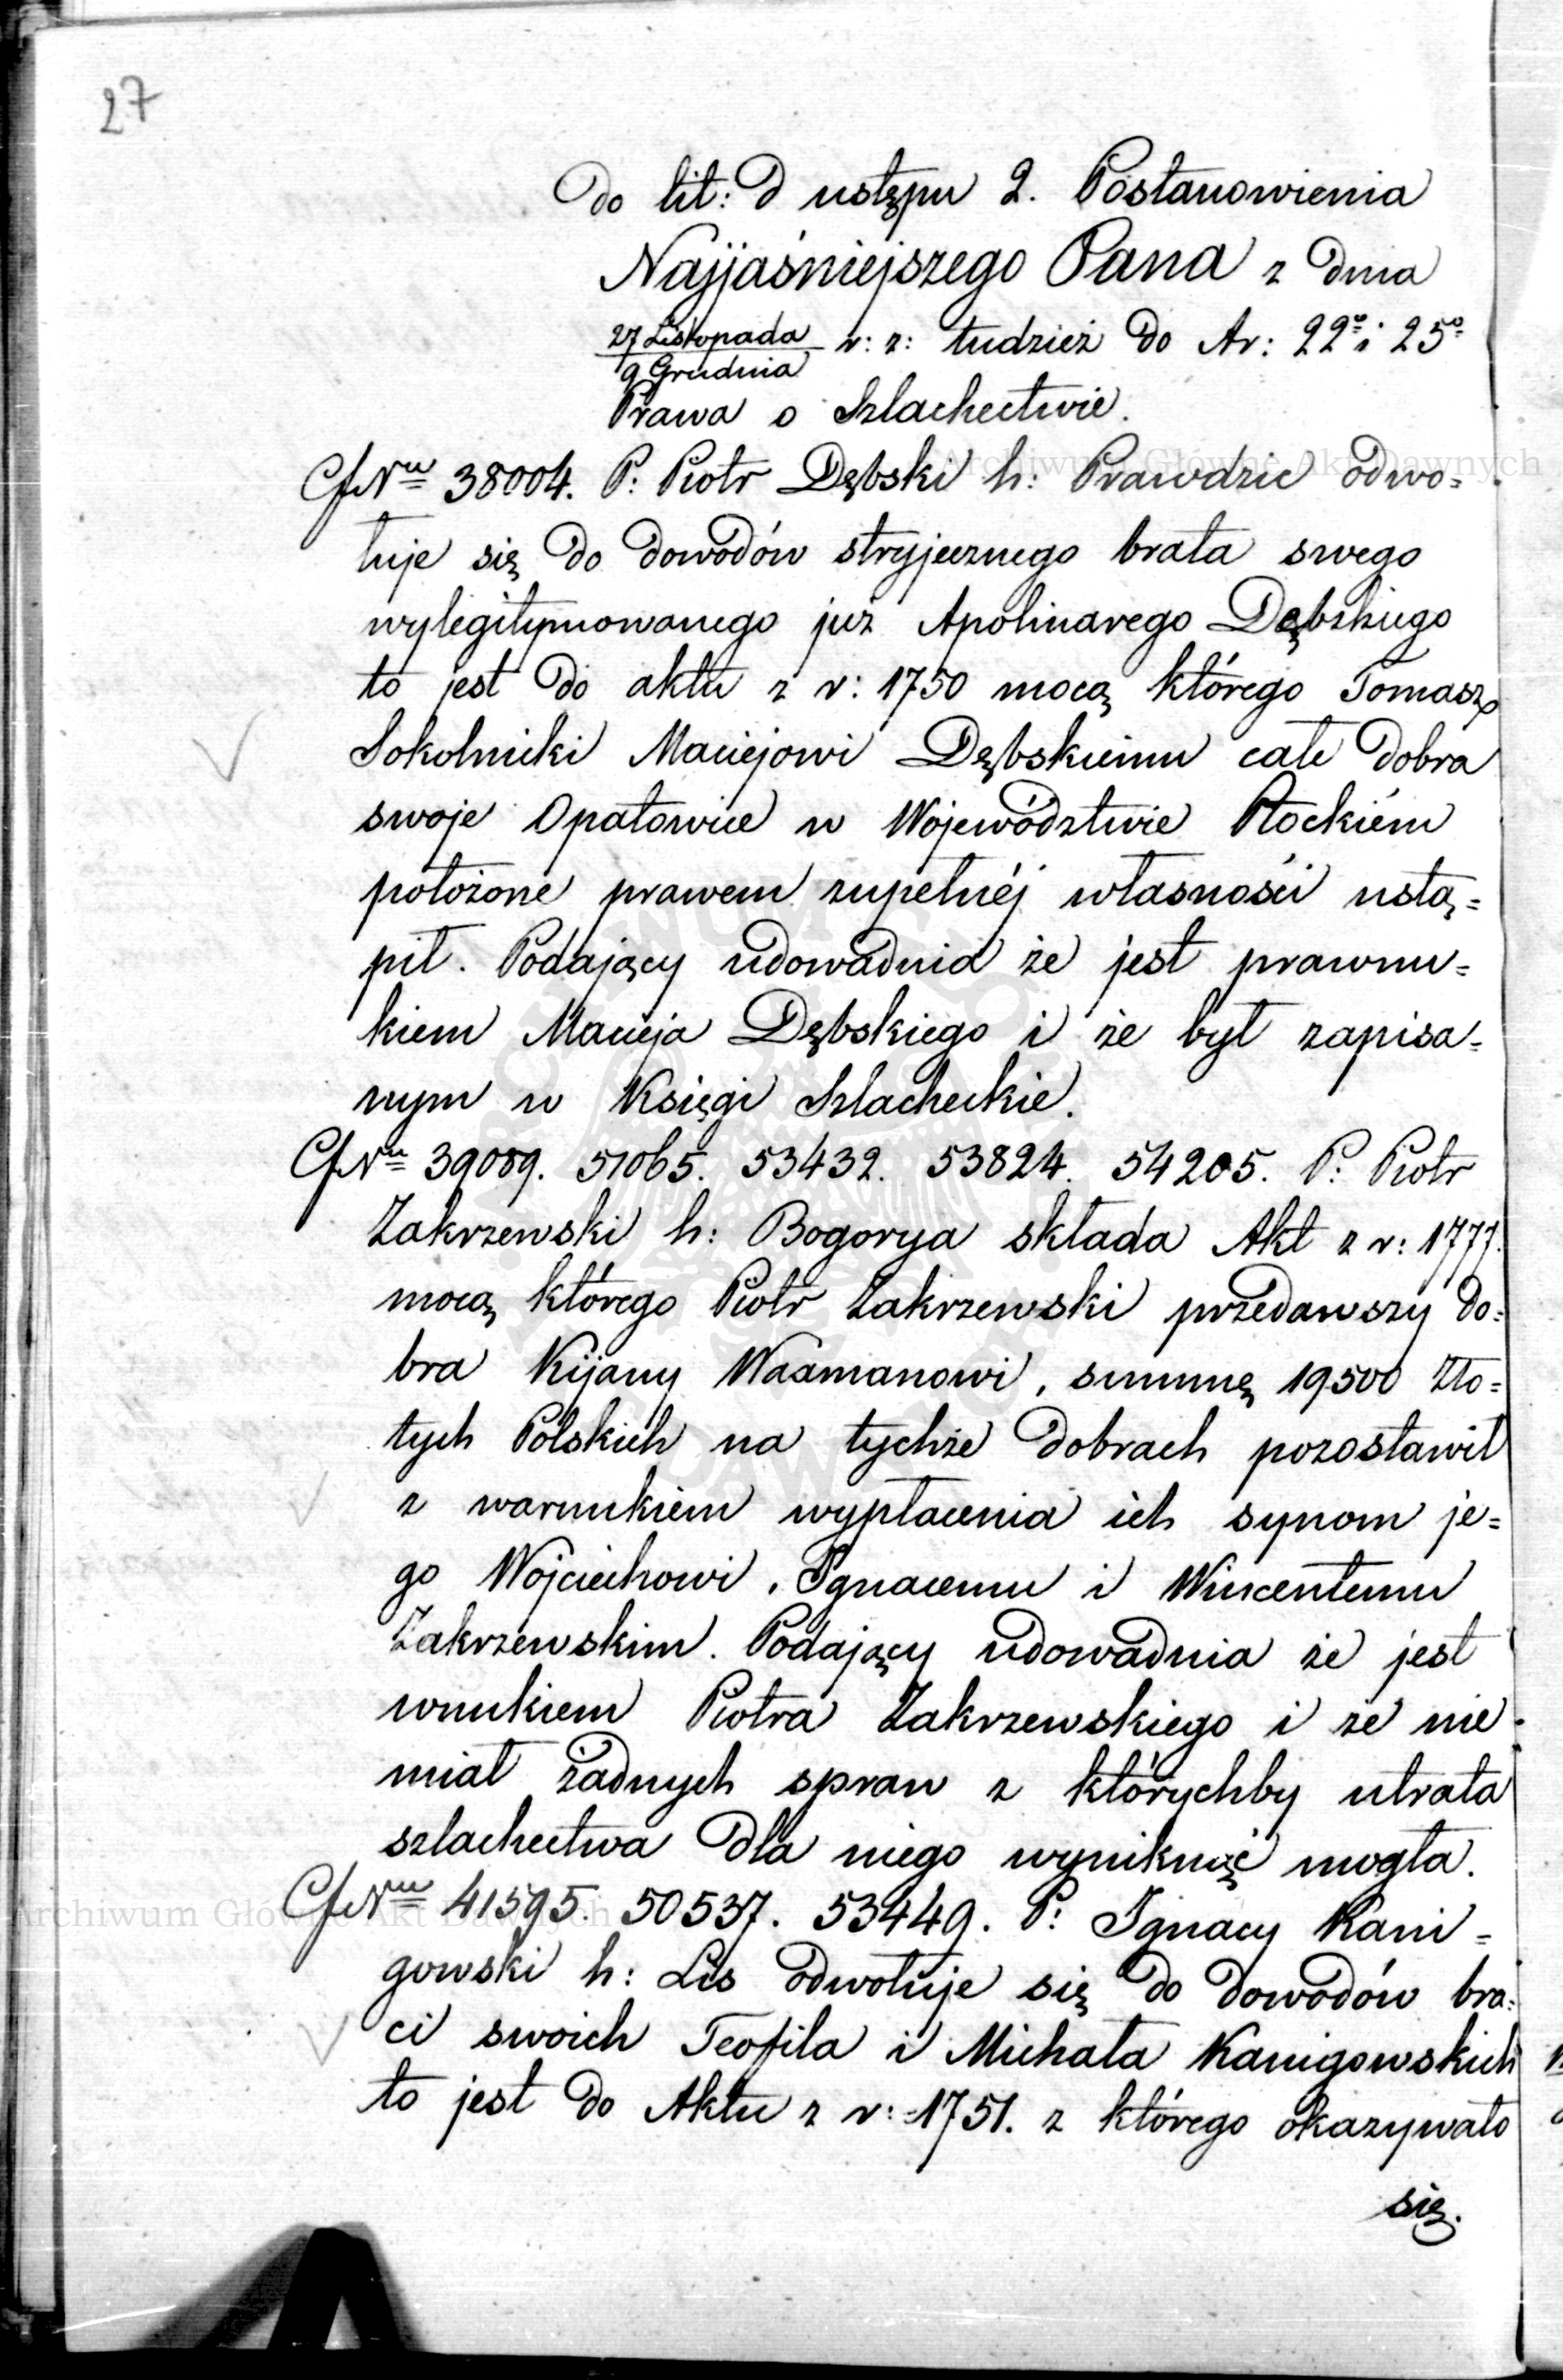 27
Do lit: D ustępu 2. Postanowienia
Najjaśniejszego Pana z dnia
27 Listopada
9 Grudnia
r: z: tudzież do Ar: 22º i 25º
Prawa o Szlachectwie.
Nru 38004. P: Piotr Dębski h: Prawdzic odwo=
łuje się do dowodów stryjecznego brata swego
wylegitymowanego już Apolinarego Dębskiego
to jest do aktu z r: 1750 mocą którego Tomasz
Sokolnicki Maciejowi Dębskiemu całe dobra
swoje Opatowice w Województwie Płockiém
położone prawem zupełnéj własności ustą=
pił. Podający udowadnia że jest prawnu=
kiem Macieja Dębskiego i że był zapisa=
nym w Księgi Szlacheckie.
Nru 39089. 51065. 53432. 53824. 54205. P: Piotr
Zakrzewski h: Bogorya składa Akt z r: 1777.
mocą którego Piotr Zakrzewski przedawszy do=
bra Kijany Waxmanowi, summę 19500 Zło=
tych Polskich na tychże dobrach pozostawił
z warunkiem wypłacenia ich synom je=
go Wojciechowi, Ignacemu i Wincentemu
Zakrzewskim. Podający udowadnia że jest
wnukiem Piotra Zakrzewskiego i że nie
miał żadnych spraw z którychby utrata
szlachectwa dla niego wyniknąć mogła.
Nru 41595. 50537. 53449. P: Ignacy Kani=
gowski h: Lis odwołuje się do dowodów bra=
ci swoich Teofila i Michała Kanigowskich
to jest do Aktu z r: 1751. z którego okazywało
się.
Archiwum Główne Akt Dawnych
Archiwum Główne Akt Dawnych